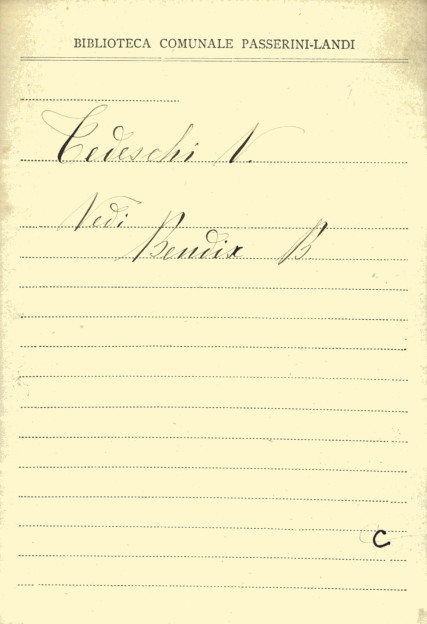 BIBLIOTECA COMUNALE PASSERINI-LANDI
Tedeschi V.
Vedi
Bendix B.
C